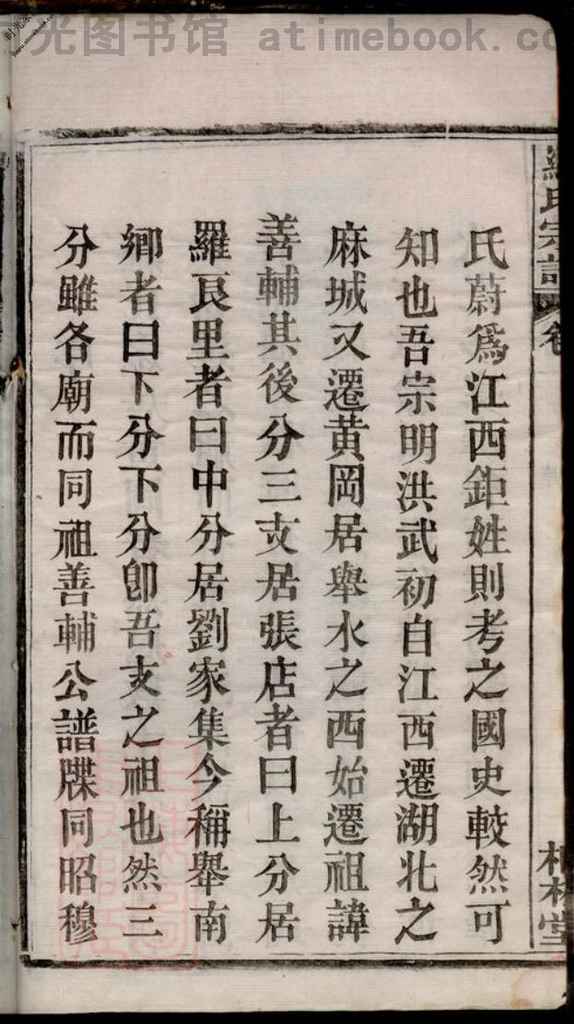 光图书馆 atimebook.co
氏宗譜 卷
氏蔚爲江西鉅姓則考之國史較然可
知也吾宗明洪武初自江西遷湖北之
麻城又遷黃岡居舉水之西始遷祖諱
善輔其後分三支居張店者曰上分居
羅良里者曰中分居劉家集今稱舉南
鄉者曰下分下分卽吾支之祖也然三
分雖各廟而同祖善輔公譜牒同昭穆